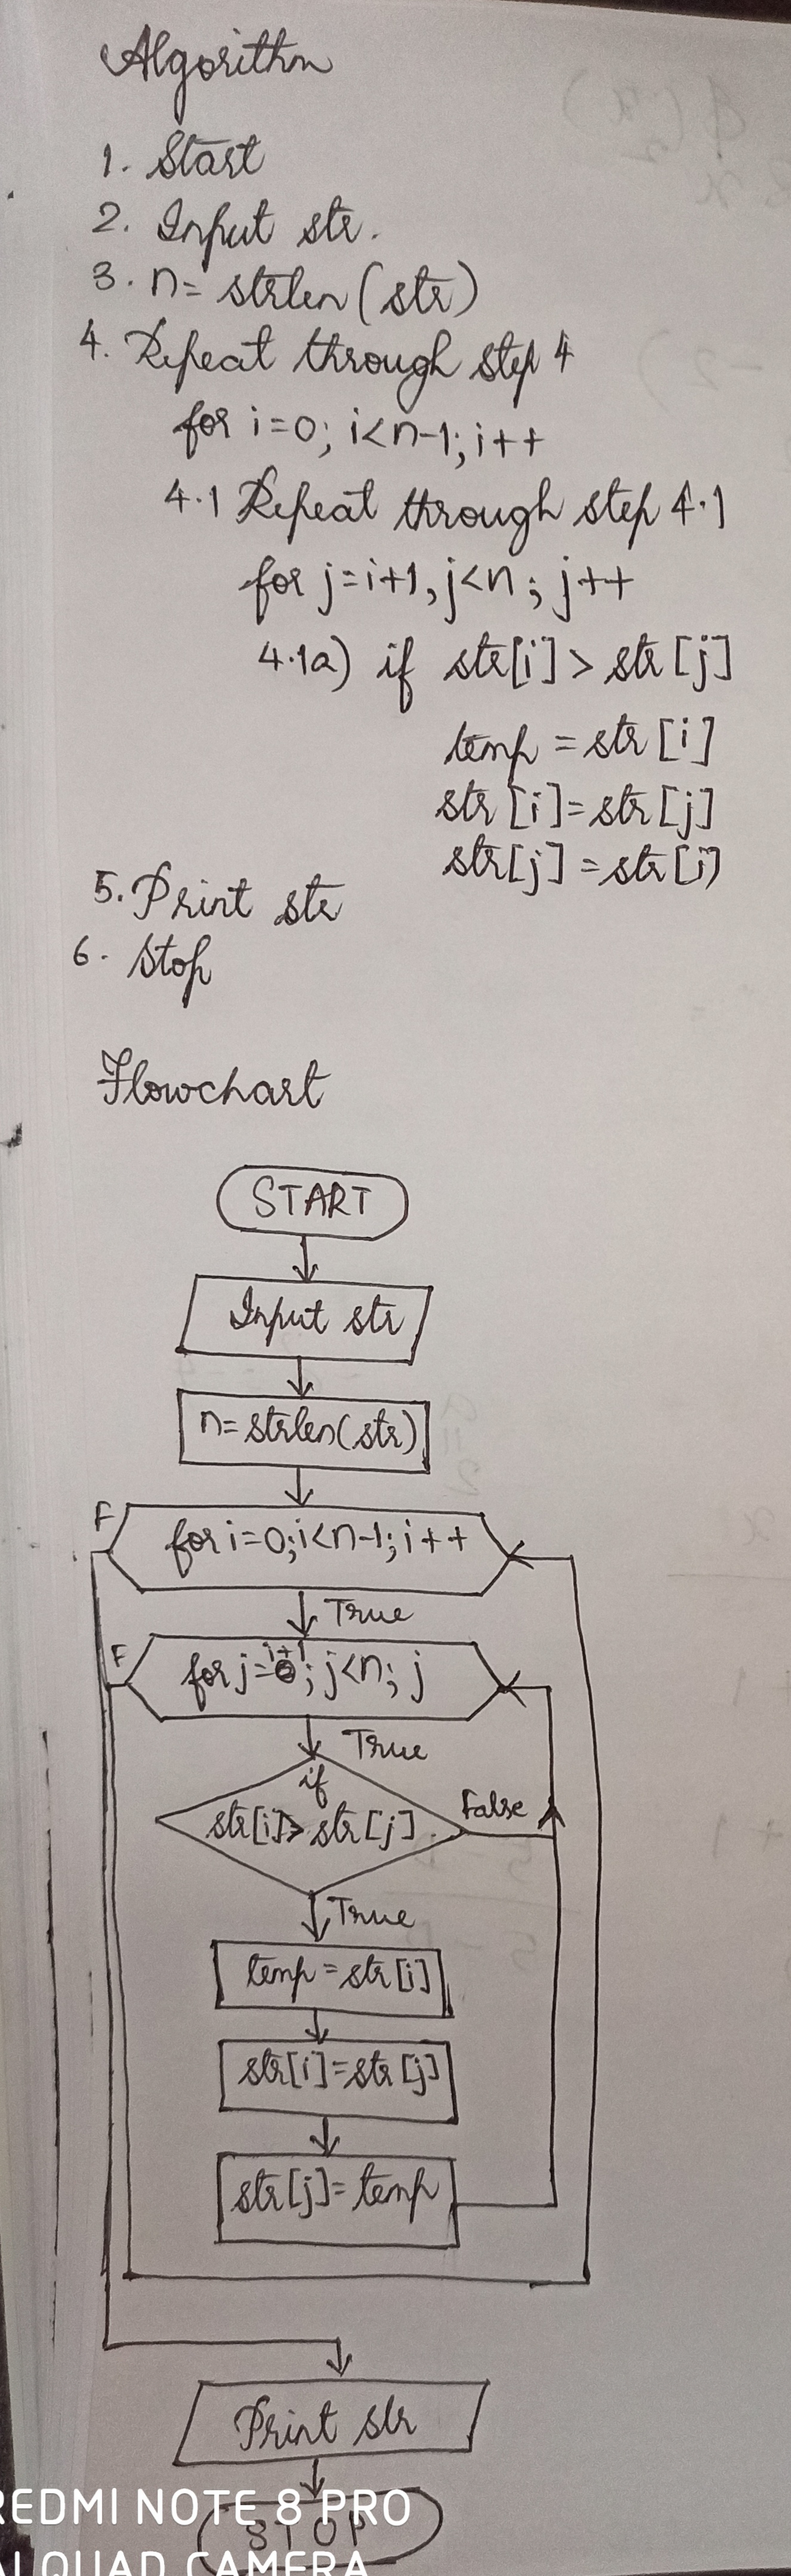 Algorithm
1. Start
2. Input str.
3. n= strlen(str)
4. Repeat through step 4
for i=0; i<n-1; i++
4.1 Repeat through step 4.1
for j=i+1, j<n; j++
4.1a) if str[i] > str[j]
temp = str[i]
str[i]=str[j]
str[j]=str[i]
5. Print str
6. Stop
Flowchart
START
Input str
n=strlen(str)
F
for i=0;i<n-1;i++
True
F
for j=i+1; j<n; j
True
if
str[i]>str[j]
False
True
temp=str[i]
str[i]=str[j]
str[j]=temp
Print str
STOP
REDMI NOTE 8 PRO
AI QUAD CAMERA